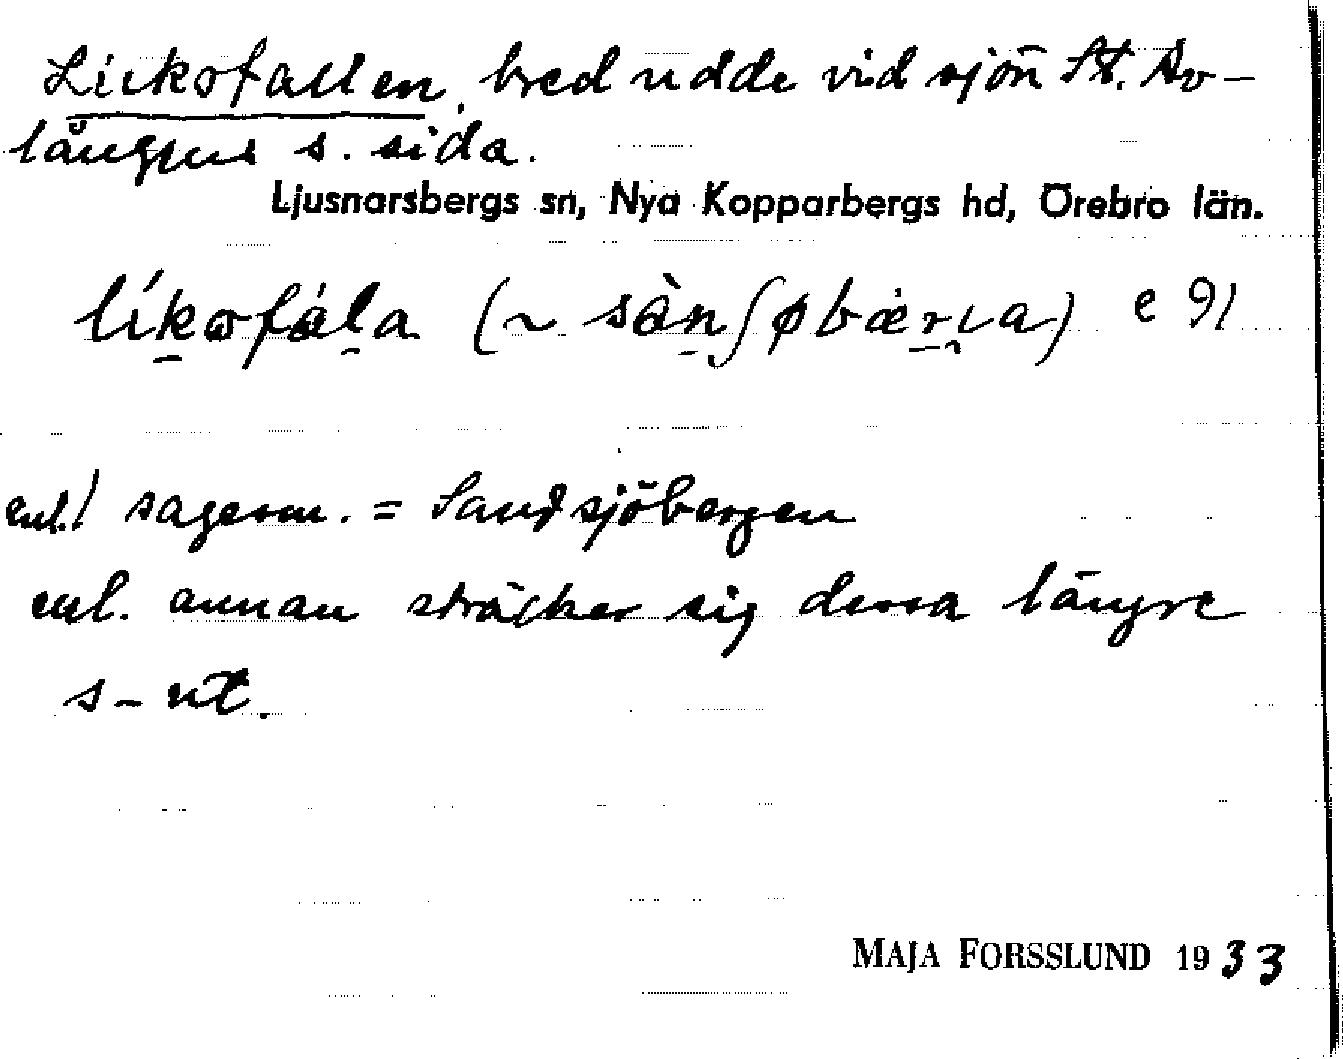 Lickofallen, bred udde vid sjön St. Av-
långens s. sida.
Ljusnarsbergs sn, Nya Kopparbergs hd, Örebro län.
líkofála (~ sàn∫øbærɩa) e 91
enl. sagesm. = Sandsjöbergen
enl. annan sträcker sig dessa längre
s-ut.
MAJA FORSSLUND 1933